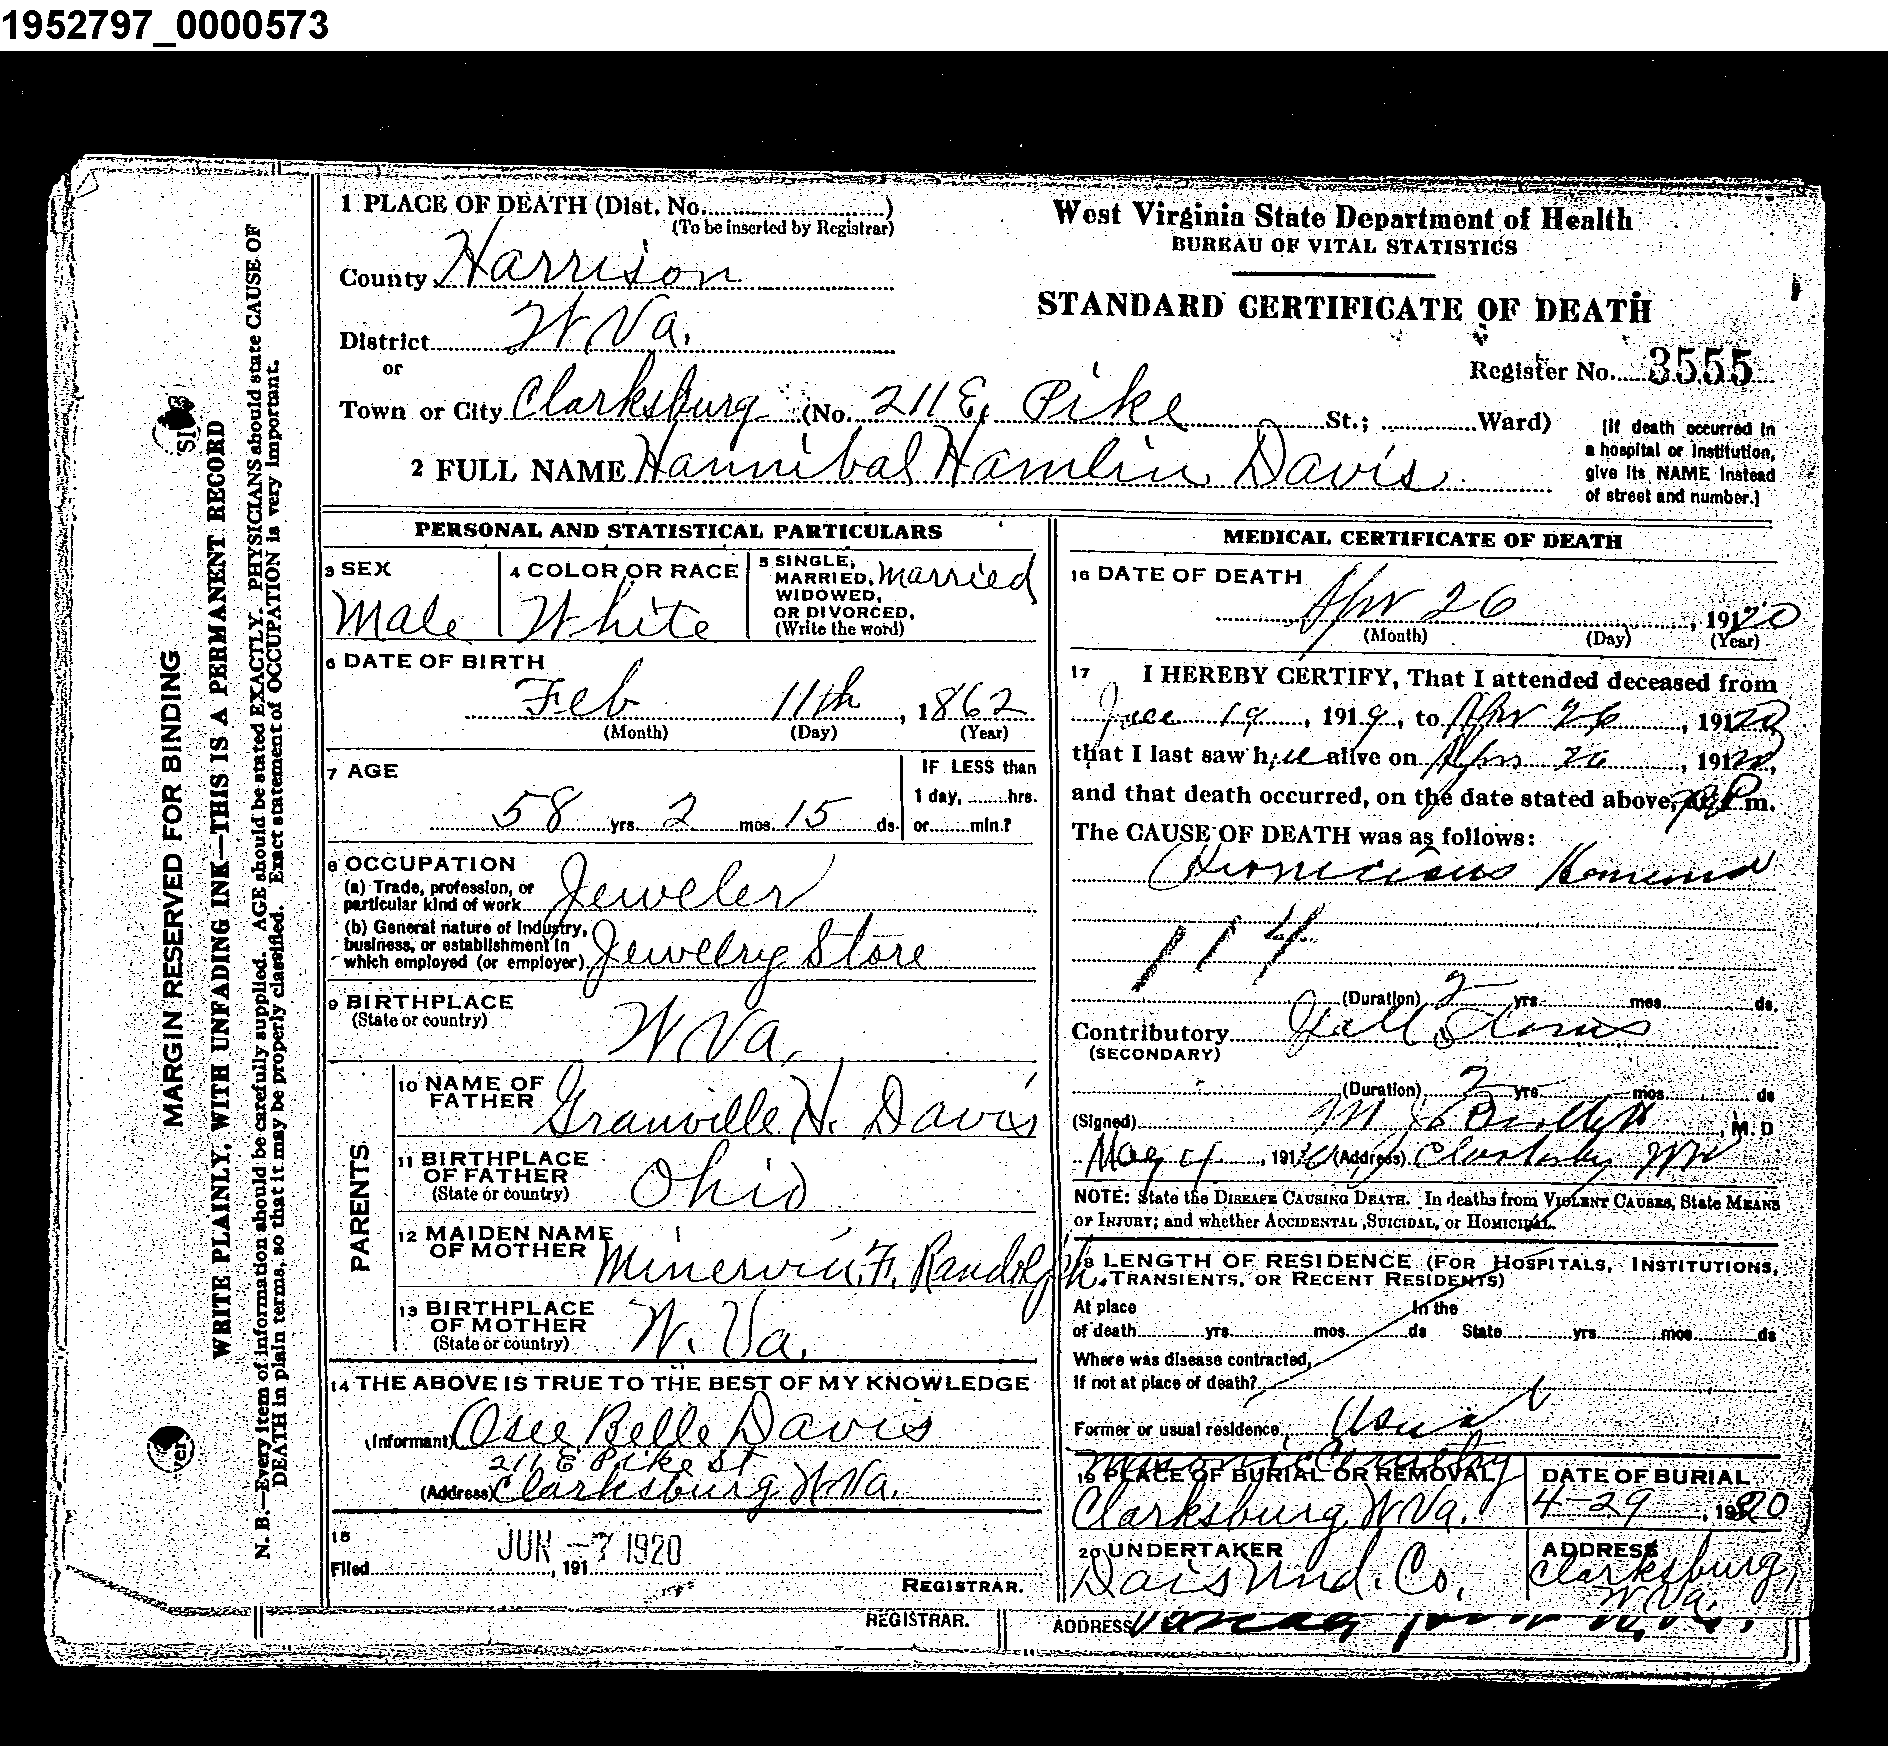 1952797_0000573
MARGIN RESERVED FOR BINDING
WRITE PLAINLY, WITH UNFADING INK—THIS IS A PERMANENT RECORD
N. B.—Every item of information should be carefully supplied. AGE should be stated EXACTLY. PHYSICIANS should state CAUSE OF
DEATH in plain terms, so that it may be properly classified. Exact statement of OCCUPATION is very important.
1 PLACE OF DEATH (Dist. No. )
(To be inserted by Registrar)
County Harrison
District W Va.
or
Town or City Clarksburg (No. 211 E. Pike St.; Ward)
West Virginia State Department of Health
BUREAU OF VITAL STATISTICS
STANDARD CERTIFICATE OF DEATH
Register No. 3555
[If death occurred in
a hospital or institution,
give its NAME instead
of street and number.]
2 FULL NAME Hannibal Hamlin Davis
PERSONAL AND STATISTICAL PARTICULARS
3 SEX
Male
4 COLOR OR RACE
White
5 SINGLE,
MARRIED, Married
WIDOWED,
OR DIVORCED,
(Write the word)
6 DATE OF BIRTH
Feb 11th, 1862
(Month) (Day) (Year)
7 AGE
58 yrs. 2 mos. 15 ds.
IF LESS than
1 day, hrs.
or min.?
8 OCCUPATION
(a) Trade, profession, or
particular kind of work Jeweler
(b) General nature of Industry,
business, or establishment in
which employed (or employer) Jewelry Store
9 BIRTHPLACE
(State or country)
W Va.
PARENTS
10 NAME OF
FATHER Granville H. Davis
11 BIRTHPLACE
OF FATHER
(State or country) Ohio
12 MAIDEN NAME
OF MOTHER Minervia F. Randolph
13 BIRTHPLACE
OF MOTHER
(State or country) W. Va.
14 THE ABOVE IS TRUE TO THE BEST OF MY KNOWLEDGE
(Informant) Osee Belle Davis
211 E Pike St
(Address) Clarksburg W Va.
15
Filed JUN -7 1920, 191
REGISTRAR.
MEDICAL CERTIFICATE OF DEATH
16 DATE OF DEATH
Apr 26, 1920
(Month) (Day) (Year)
17 I HEREBY CERTIFY, That I attended deceased from
19, 1919, to Apr 26, 1920
that I last saw h alive on Apr 26, 1920,
and that death occurred, on the date stated above, at P m.
The CAUSE OF DEATH was as follows:
114
(Duration) 2 yrs. mos. ds.
Contributory Gall Stones
(SECONDARY)
(Duration) 2 yrs. mos. ds
(Signed) Bartlett, M. D
May 4, 191 (Address)
NOTE: State the DISEASE CAUSING DEATH. In deaths from VIOLENT CAUSES, State MEANS
OF INJURY; and whether ACCIDENTAL, SUICIDAL, or HOMICIDAL.
18 LENGTH OF RESIDENCE (FOR HOSPITALS, INSTITUTIONS,
TRANSIENTS, OR RECENT RESIDENTS)
At place In the
of death yrs. mos. ds State yrs. mos ds
Where was disease contracted,
If not at place of death?
Former or usual residence Usual
Masonic Cemetery
19 PLACE OF BURIAL OR REMOVAL
Clarksburg W Va.
DATE OF BURIAL
4-29, 1920
20 UNDERTAKER
Davis Und. Co.
ADDRESS
Clarksburg,
W Va.
REGISTRAR.
ADDRESS